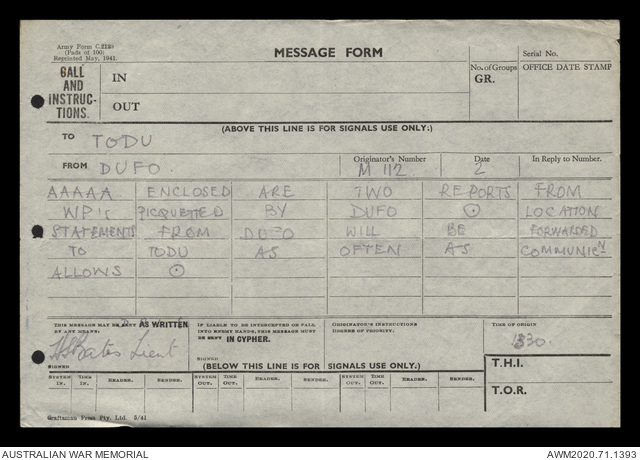 Army Form C.2128
(Pads of 100)
Reprinted May, 1941.
MESSAGE FORM
Serial No.
CALL AND INSTRUC- TIONS.
IN
No. of Groups GR.
OFFICE DATE STAMP
OUT
(ABOVE THIS LINE IS FOR SIGNALS USE ONLY:)
TO TODU
FROM DUFO.
Originator's Number M 112
Date 2
In Reply to Number.
AAAAA ENCLOSED ARE TWO REPORTS FROM
WP's PICQUETTED BY DUFO ⊙ LOCATION
STATEMENTS FROM DUFO WILL BE FORWARDED
TO TODU AS OFTEN AS COMMUNICN
ALLOWS ⊙
THIS MESSAGE MAY BE SENT AS WRITTEN BY ANY MEANS.
IF LIABLE TO BE INTERCEPTED OR FALL INTO ENEMY HANDS, THIS MESSAGE MUST BE SENT IN CYPHER.
ORIGINATOR'S INSTRUCTIONS DEGREE OF PRIORITY.
TIME OF ORIGIN
1830.
Bates Lieut
SIGNED
SIGNED
(BELOW THIS LINE IS FOR SIGNALS USE ONLY:)
T.H.I.
SYSTEM IN. TIME IN. READER. SENDER. SYSTEM OUT. TIME OUT. READER. SENDER. SYSTEM OUT. TIME OUT. READER. SENDER.
T.O.R.
Craftsman Press Pty. Ltd. 5/41
AUSTRALIAN WAR MEMORIAL
AWM2020.71.1393